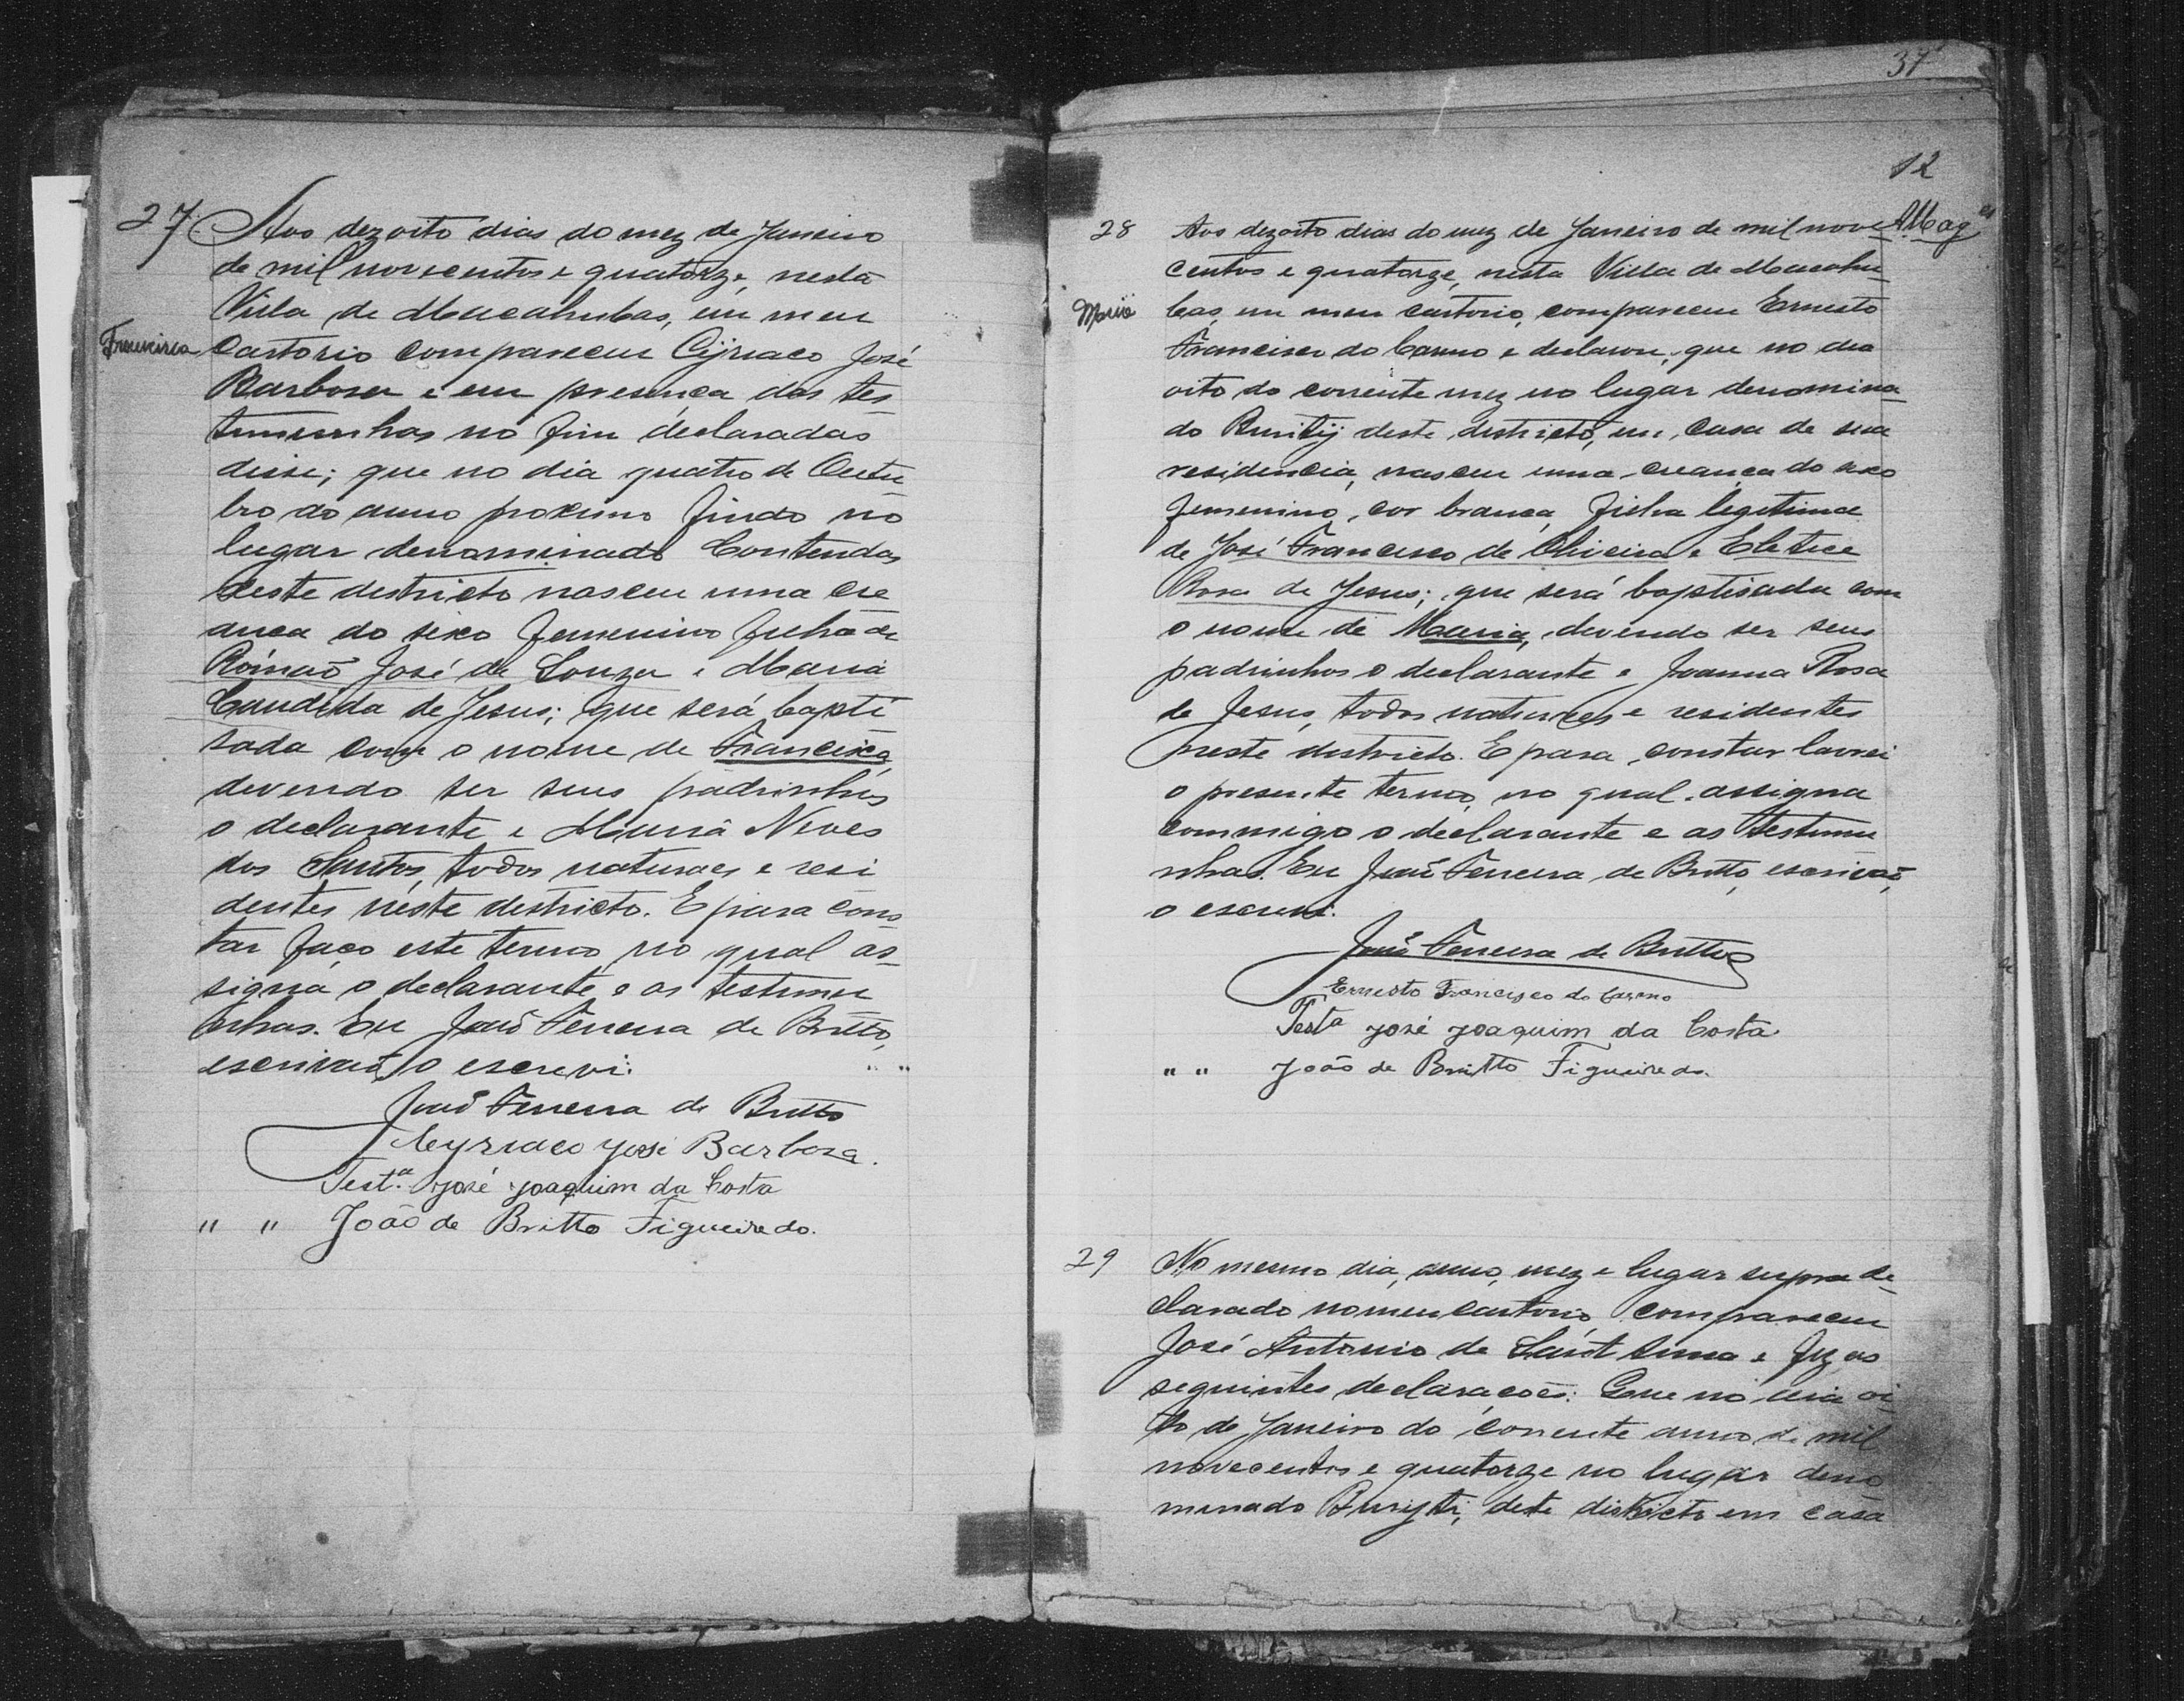 27. Aos dezoito dias do mez de Janeiro
de mil novecentos e quatorze, nesta
Villa de Macahubas, em meu
Francisca
Cartorio compareceu Cyriaco José
Barbosa e em presença das tes
temunhas no fim declaradas
disse; que no dia quatro de Outu
bro do anno proximo findo no
lugar denominado Contendas
deste districto nasceu uma cre
ança do sexo femenino filha de
Romaõ José de Souza e Maria
Candida de Jesus; que será bapti
sada com o nome de Francisca,
devendo ser seus padrinhos
o declarante e Maria Neves
dos Santos, todos naturaes e resi
dentes neste districto. E para cons
tar faço este termo no qual as
signa o declarante e as testemu
nhas. Eu João Ferreira de Britto,
escrivaõ o escrevi.
João Ferreira de Britto
Cyriaco José Barboza.
Test.a José Joaquim da Costa
" " João de Britto Figueiredo.
37
12
28 Aos dezoito dias do mez de Janeiro de mil nove
centos e quatorze, nesta Villa de Macahu
Maria
bas, em meu cartorio, compareceu Ernesto
Francisco do Carmo e declarou, que no dia
oito do corrente mez no lugar denomina
do Buritÿ deste districto, em casa de sua
residencia, nasceu uma creança do sexo
femenino, cor branca, filha legitima
de José Francisco de Oliveira e
Rosa de Jesus; que será baptisada com
o nome de Maria, devendo ser seus
padrinhos o declarante e Joanna Rosa
de Jesus, todos naturaes e residentes
neste districto. E para constar lavrei
o presente termo, no qual assigna
commigo o declarante e as testemu
nhas. Eu João Ferreira de Britto, escrivaõ,
o escrevi.
João Ferreira de Britto
Ernesto Francisco do Carmo
Testa José Joaquim da Costa
" " João de Britto Figueiredo.
29 No mesmo dia, anno, mez e lugar supra de
clarado no meu cartorio compareceu
José Antonio de Sant Anna e fez as
seguintes declarações: Que no dia oi
to de Janeiro do corrente anno de mil
novecentos e quatorze no lugar deno
minado Buryti, deste districto em casa